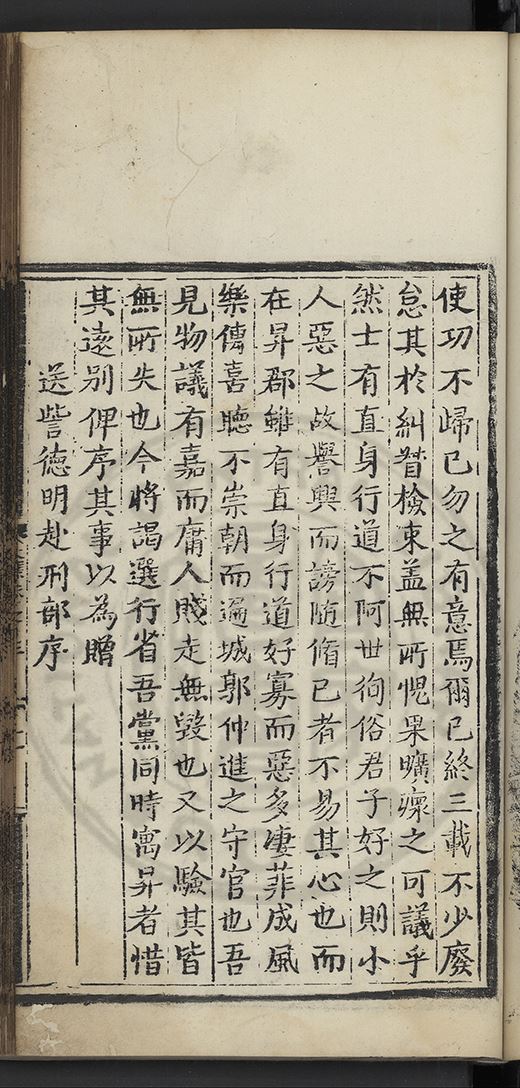 使功不歸已勿之有意焉爾已終三載不少廢
怠其於糾督檢東盖無所愧果曠瘝之可議乎
然士有直身行道不阿世徇俗君子好之則小
人惡之故譽興而謗随脩已者不易其心也而
在昇郡雖有直身行道好寡而惡多凄菲成風
樂傳喜聴不崇朝而遍城郭仲進之守官也吾
見物議有嘉而庸人賤走無毀也又以驗其皆
無所失也今將謁選行省吾黨同時寓昇者惜
其遠别俾序其事以為贈
送訾德明赴刑部序